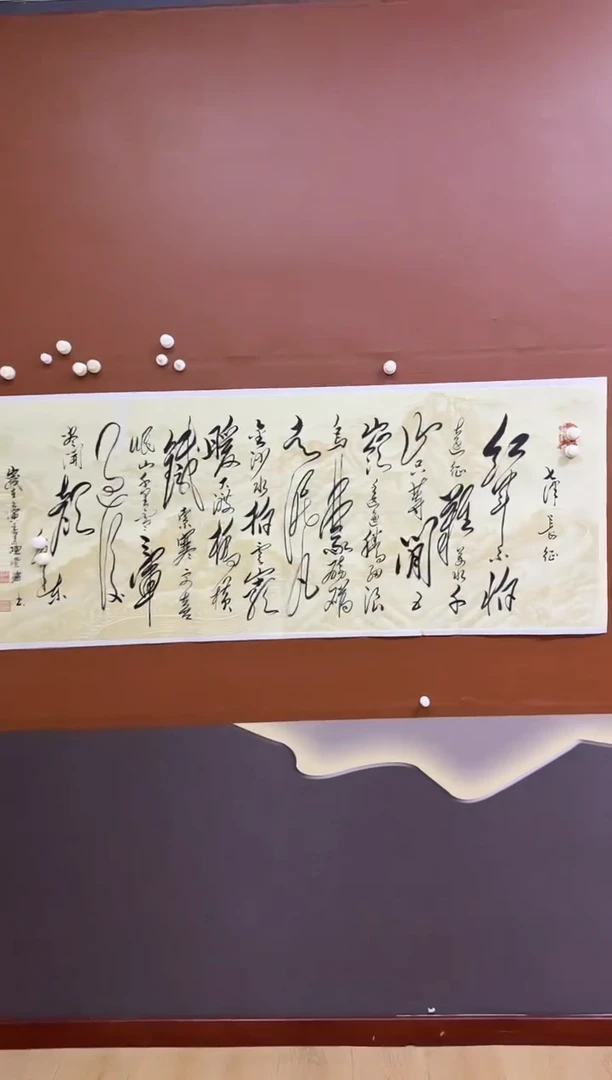 七律 長征
红軍不怕
遠征難萬水千
山只等閒五
嶺逶迤騰細浪
烏蒙磅礴
走泥丸
金沙水拍雲崖
暖大渡橋横
鐵索寒更喜
岷山千里雪三軍
过後
盡開顏